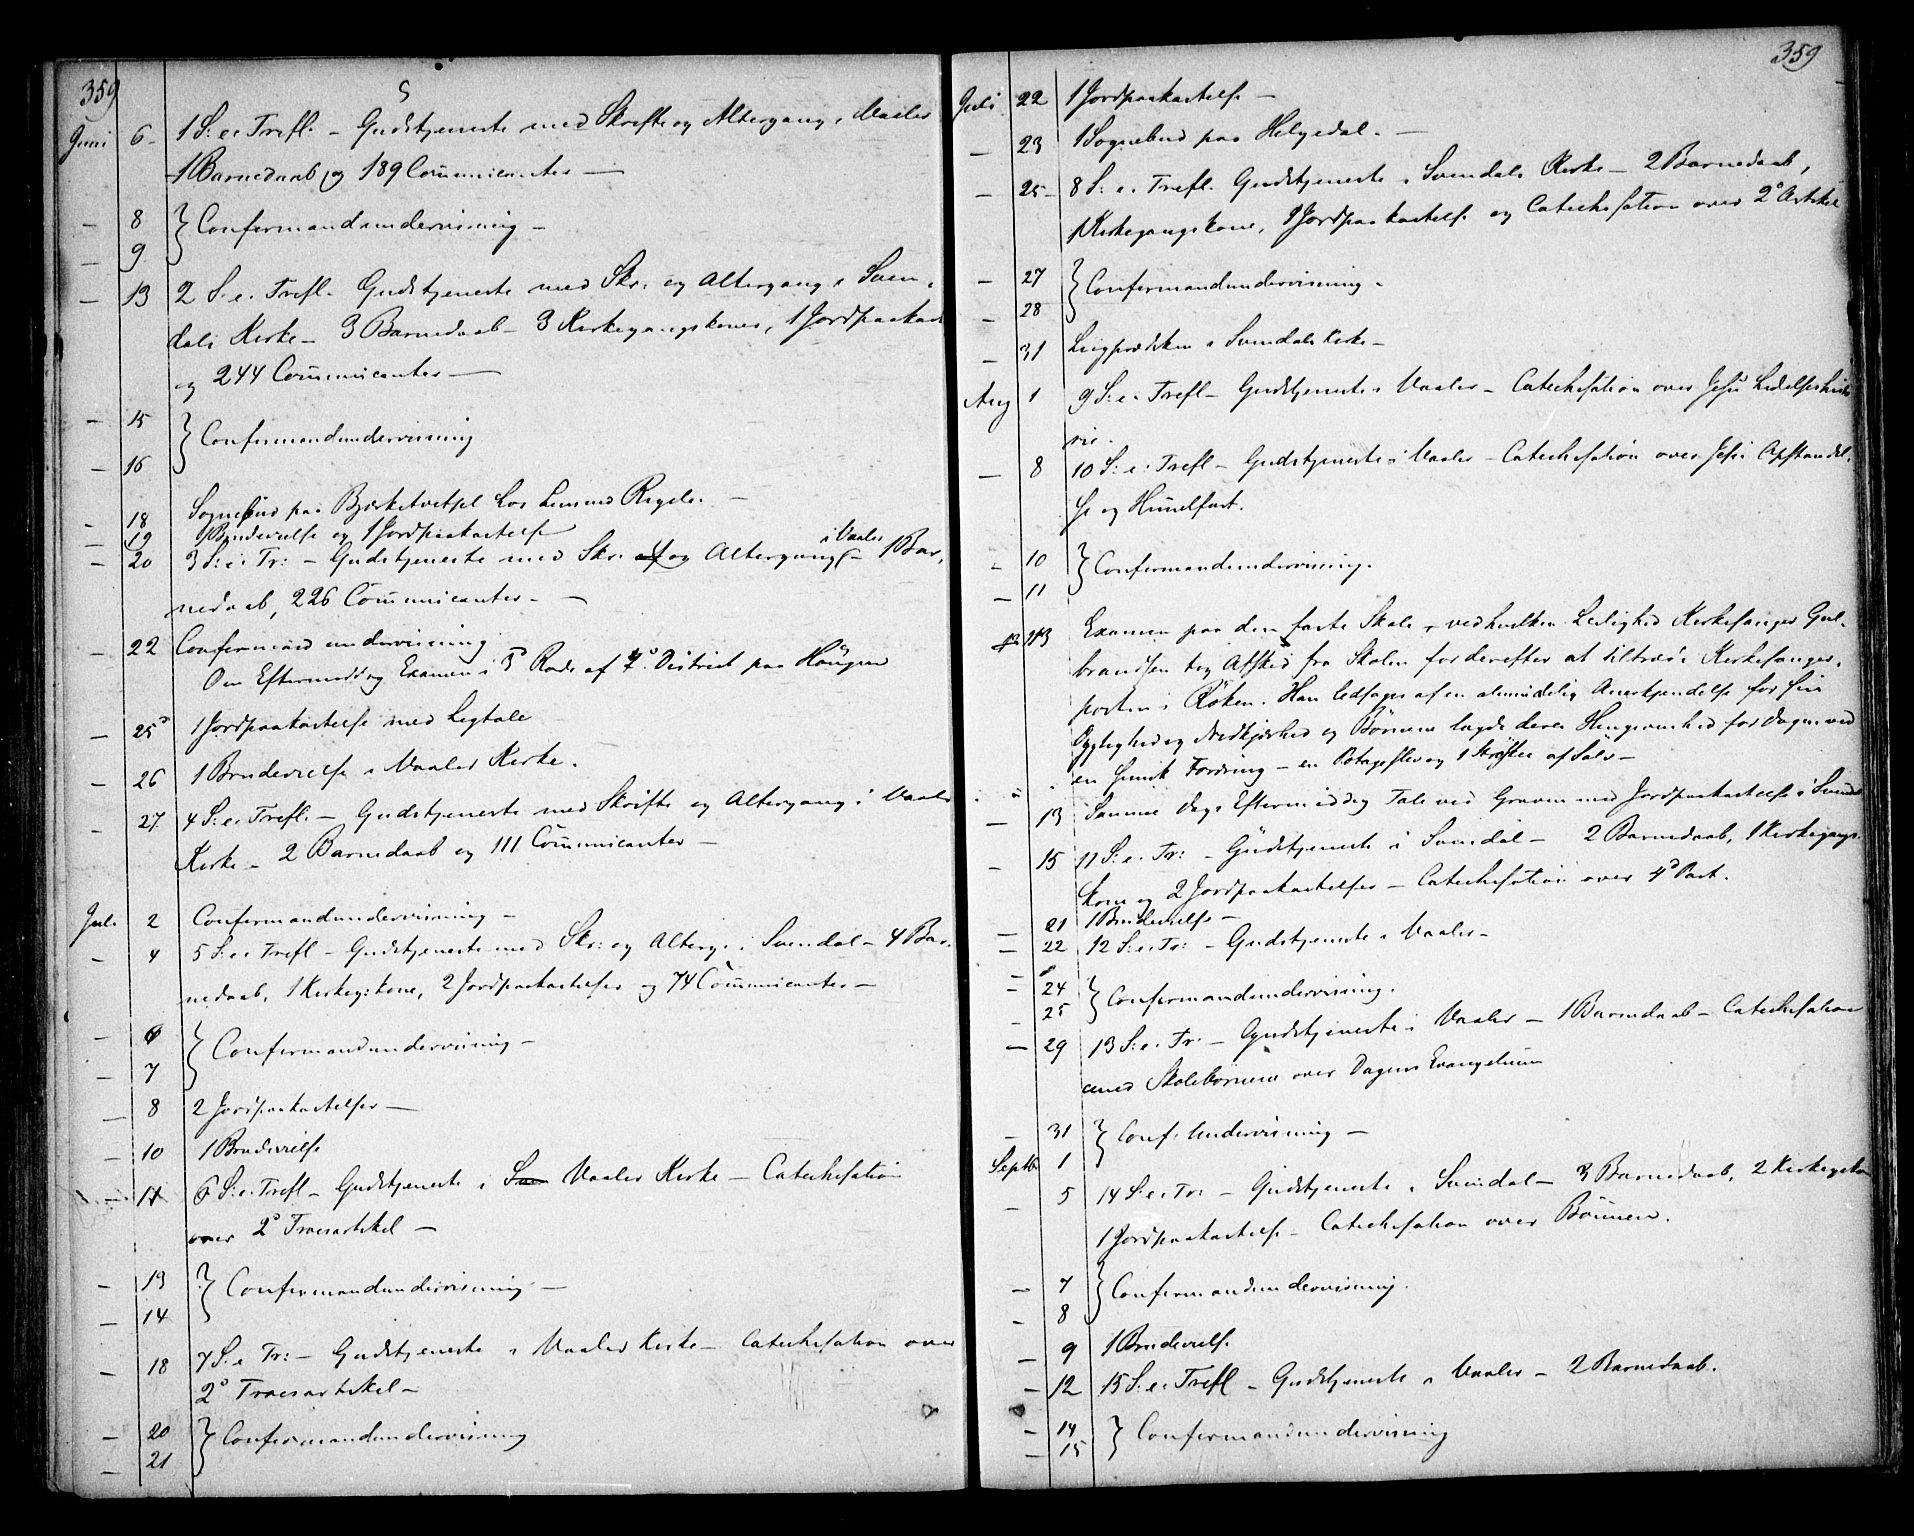 359
Juni 6 1 S: e: Trefl. – Gudstjeneste med Skrifte og Altergang i Vaaler
1 Barnedaab og 189 Communicanter –
– 8 } Confirmandundervisning –
– 9
– 13 2 S. e. Trefl. Gudstjeneste med Skr: og Altergang i Svin-
dals Kirke – 3 Barnedaab – 3 Kirkegangskoner, 1 Jordpaakast
og 244 Communicanter –
– 15 } Confirmandundervisning
– 16
– 18 Sognebud paa Hos Rygh. –
– 19 1 Brudevielse og 1 Jordpaakastelse
– 20 3 S: e: Tr: – Gudstjeneste med Skr: og Altergang i Vaaler – 1 Bar-
nedaab, 226 Communicanter. –
22 Confirmand undervisning
Om Eftermiddag Examen i Rode af District paa Haugen
– 25 1 Jordpaakastelse med Ligtale
– 26 1 Brudevielse i Vaaler Kirke.
– 27 4 S. e. Trefl. – Gudstjeneste med Skrifte og Altergang i Vaaler
Kirke – 2 Barnedaab og 111 Communicanter –
Juli 2 Confirmandundervisning –
– 4 5 S: e: Trefl – Gudstjeneste med Skr: og Alterg. i Svindal – 4 Bar-
nedaab, 1 Kirkeg:kone, 2 Jordpaakastelser og 74 Communicanter –
– 6 } Confirmandundervisning –
– 7
– 8 2 Jordpaakastelser –
– 10 1 Brudevielse
– 11 6 S: e. Trefl – Gudstjeneste i Vaaler Kirke – Catechisation
over 2d Troesartikel –
– 13 } Confirmandundervisning –
– 14
– 18 7 S. e Tr: – Gudstjeneste i Vaaler Kirke – Catechisation over
2d Troesartikel –
– 20 } Confirmandundervisning
– 21
359
Juli 22 1 Jordpaakastelse –
– 23 1 Sognebud paa Helgedal. –
– 25 8 S: e. Trefl. Gudstjeneste i Svindals Kirke – 2 Barnedaab,
1 Kirkegangskone, Jordpaakastelse og Catechisation over 2d Artikel
– 27 } Confirmandundervisning.
– 28
– 31 Liigprædiken i Svindals Kirke –
Aug 1 9 S: e: Trefl – Gudstjeneste i Vaaler – Catechisation over Jesu Lidelseshisto-
rie.
– 8 10 S: e: Trefl – Gudstjeneste i Vaaler – Catechisation over Jesu Opstandel-
se og Himelfart.
– 10 } Confirmandundervisning.
– 11
13 Examen paa den faste Skole, ved hvilken Leilighed Kirkesanger Gul-
brandsen tog Afsked fra Skolen for derefter at tiltræde Kirkesanger-
posten i Røken. Han ledsages af en almindelig Anerkjendelse for sin
Dygtighed og Nidkjærhed og Børnene lagde deres Hengivenhed for Dagen ved
en Foræring – en Potageskee og 1 af Sølv –
– 13 Samme Dags Eftermiddag Tale ved Graven med Jordpaakastelse i Svindal
– 15 11 S: e. Tr: – Gudstjeneste i Svindal – 2 Barnedaab, 1 Kirkegangs-
kone og 2 Jordpaakastelser – Catechisation over 4d Part.
– 21 1 Brudevielse –
– 22 12 S: e: Tr: – Gudstjeneste i Vaaler –
– 24 } Confirmandundervisning.
– 25
– 29 13 S: e. Tr: – Gudstjeneste i Vaaler – 1 Barnedaab – Catechisation
med Skolebørnene over Dagens Evangelium
– 31 } Conf: Undervisning –
Septb 1
– 5 14 S: e: Tr: – Gudstjeneste i Svindal – 3 Barnedaab, 2 Kirkegsko
1 Jordpaakastelse – Catechisation over Bönnen.
– 7 } Confirmandundervisning.
– 8
– 9 1 Brudevielse.
– 12 15 S: e: Trefl – Gudstjeneste i Vaaler – 2 Barnedaab.
– 14 } Confirmandundervisning
– 15